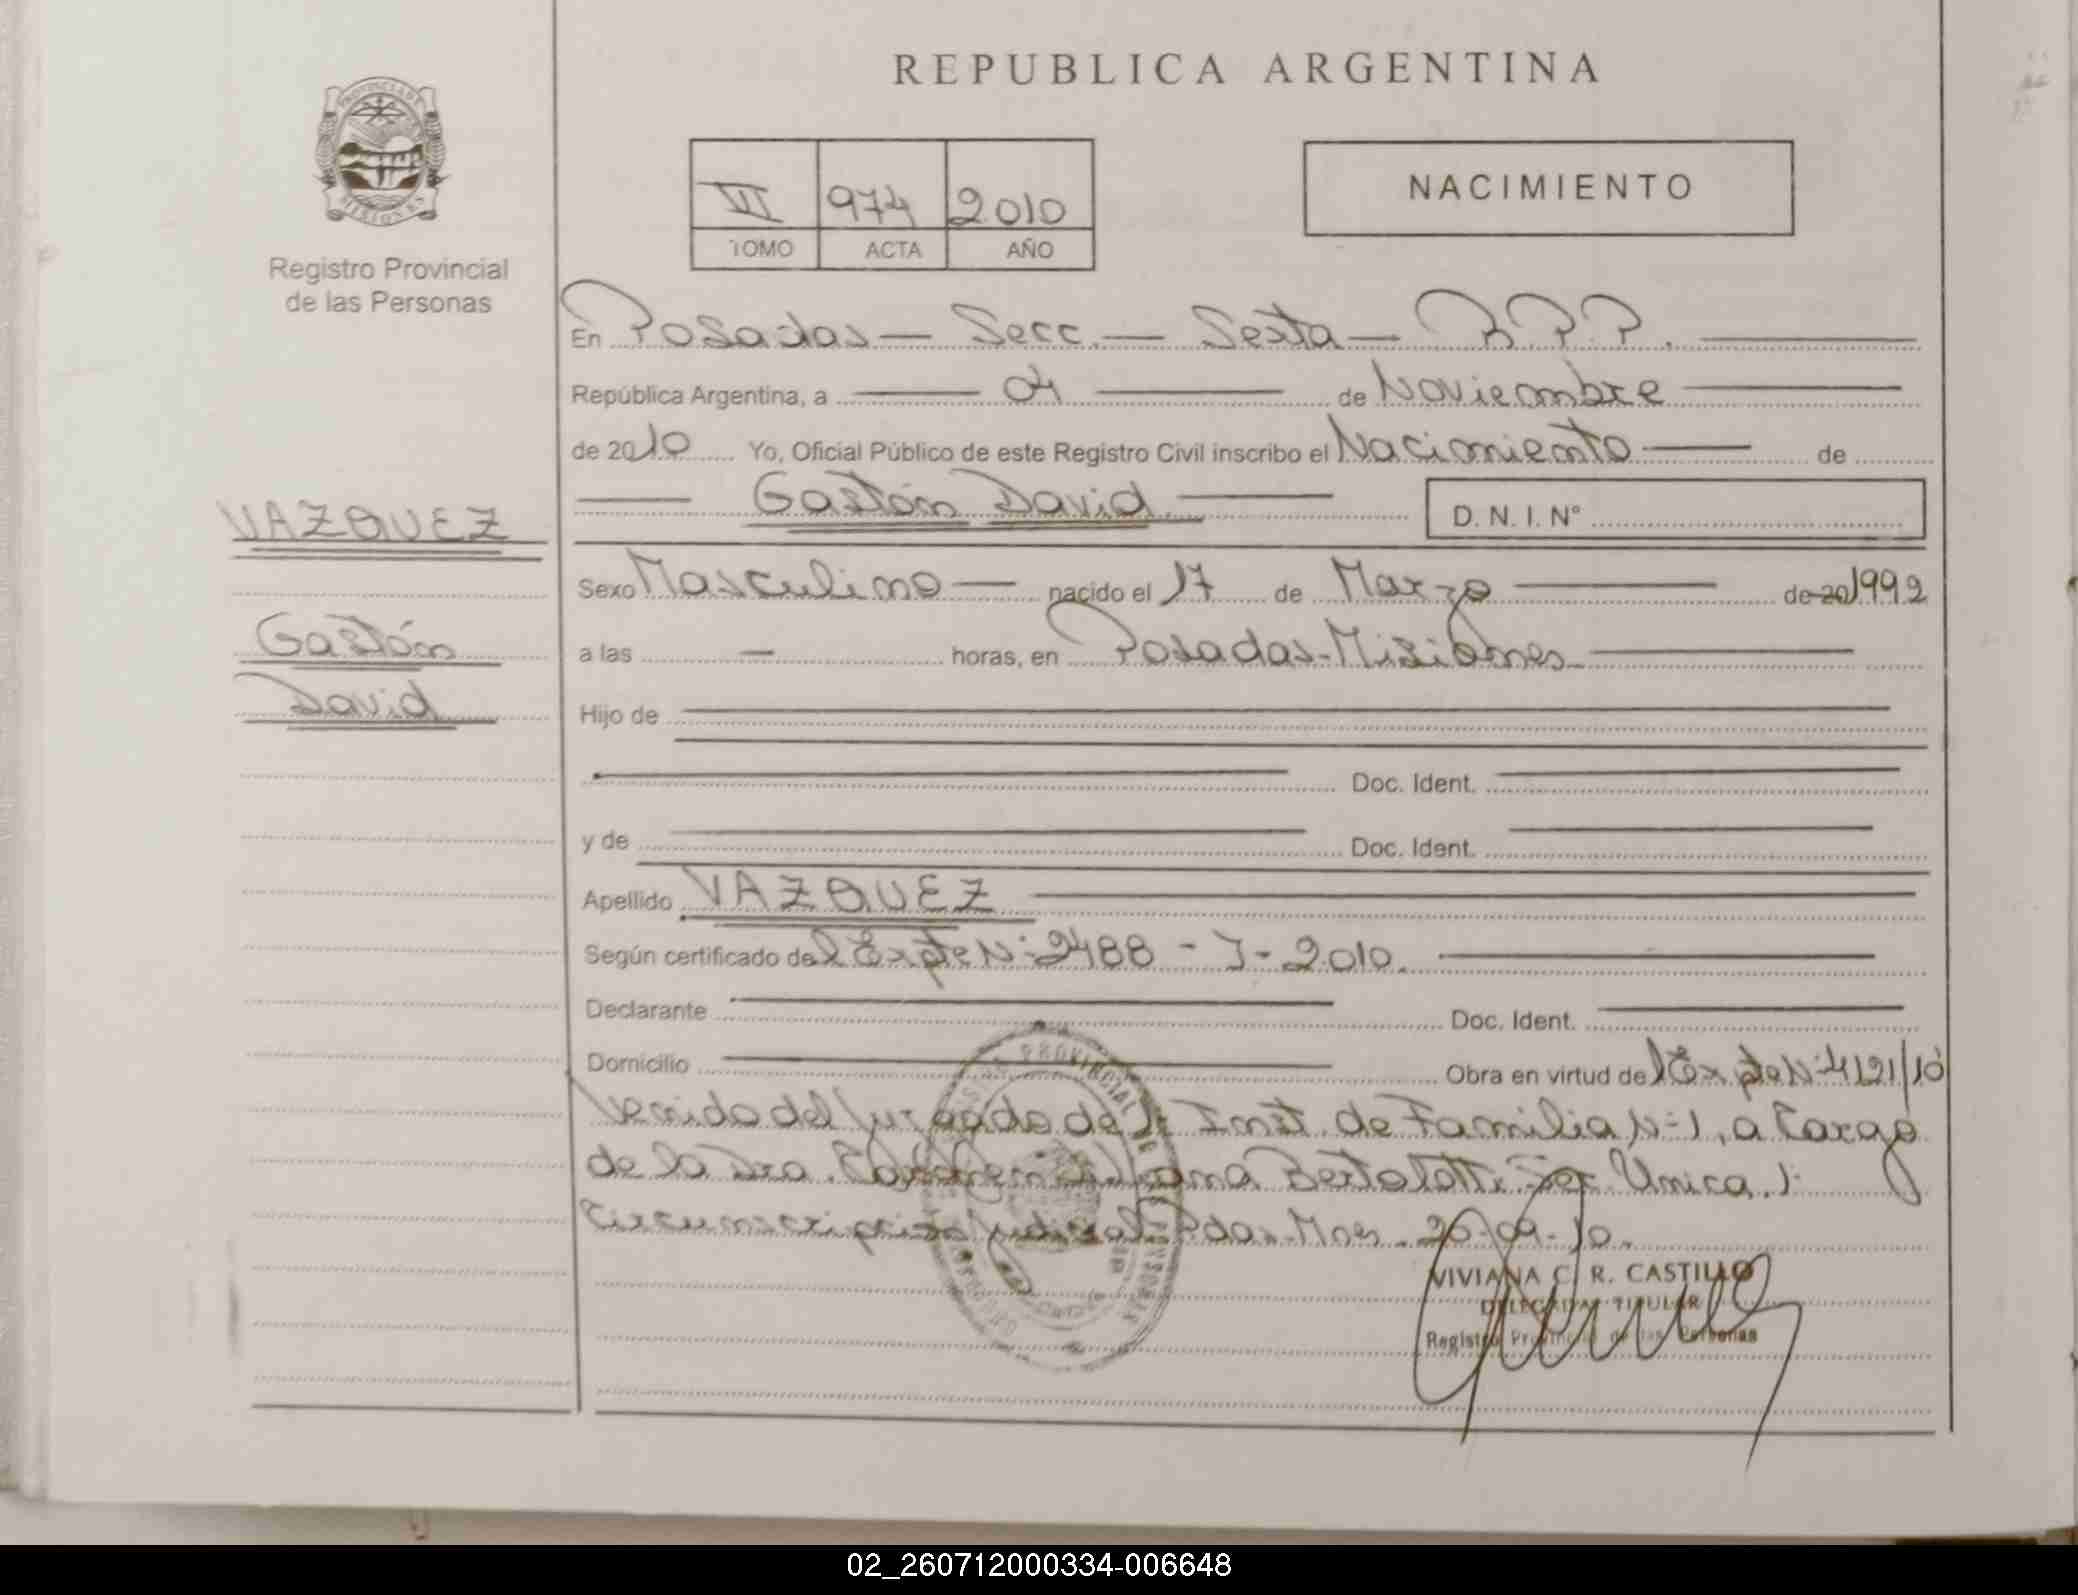 REPUBLICA ARGENTINA
PROVINCIA DE
MISIONES
Registro Provincial
de las Personas
VI 974 2010
TOMO ACTA AÑO
NACIMIENTO
En Posadas — Secc. — Sexta — R.P.P.
República Argentina, a 04 de Noviembre
de 2010 Yo, Oficial Público de este Registro Civil inscribo el Nacimiento de
Gastón David D. N. I. N°
VAZQUEZ
Gastón
David
Sexo Masculino nacido el 17 de Marzo de 20 1992
a las — horas, en Posadas-Misiones
Hijo de
Doc. Ident.
y de Doc. Ident.
Apellido VAZQUEZ
Según certificado del Expte N: 2488 - J - 2010.
Declarante Doc. Ident.
Domicilio Obra en virtud del Expte N: 4121/10
venido del Juzgado de 1: Inst. de Familia N: 1, a Cargo
de la Dra. Bertolotti. Sec. Unica. 1:
Circunscripción Judicial Pdas-Mnes. 20-09-10.
VIVIANA C. R. CASTILLO
DELEGADA TITULAR
Registro Provincial de las Personas
02_260712000334-006648